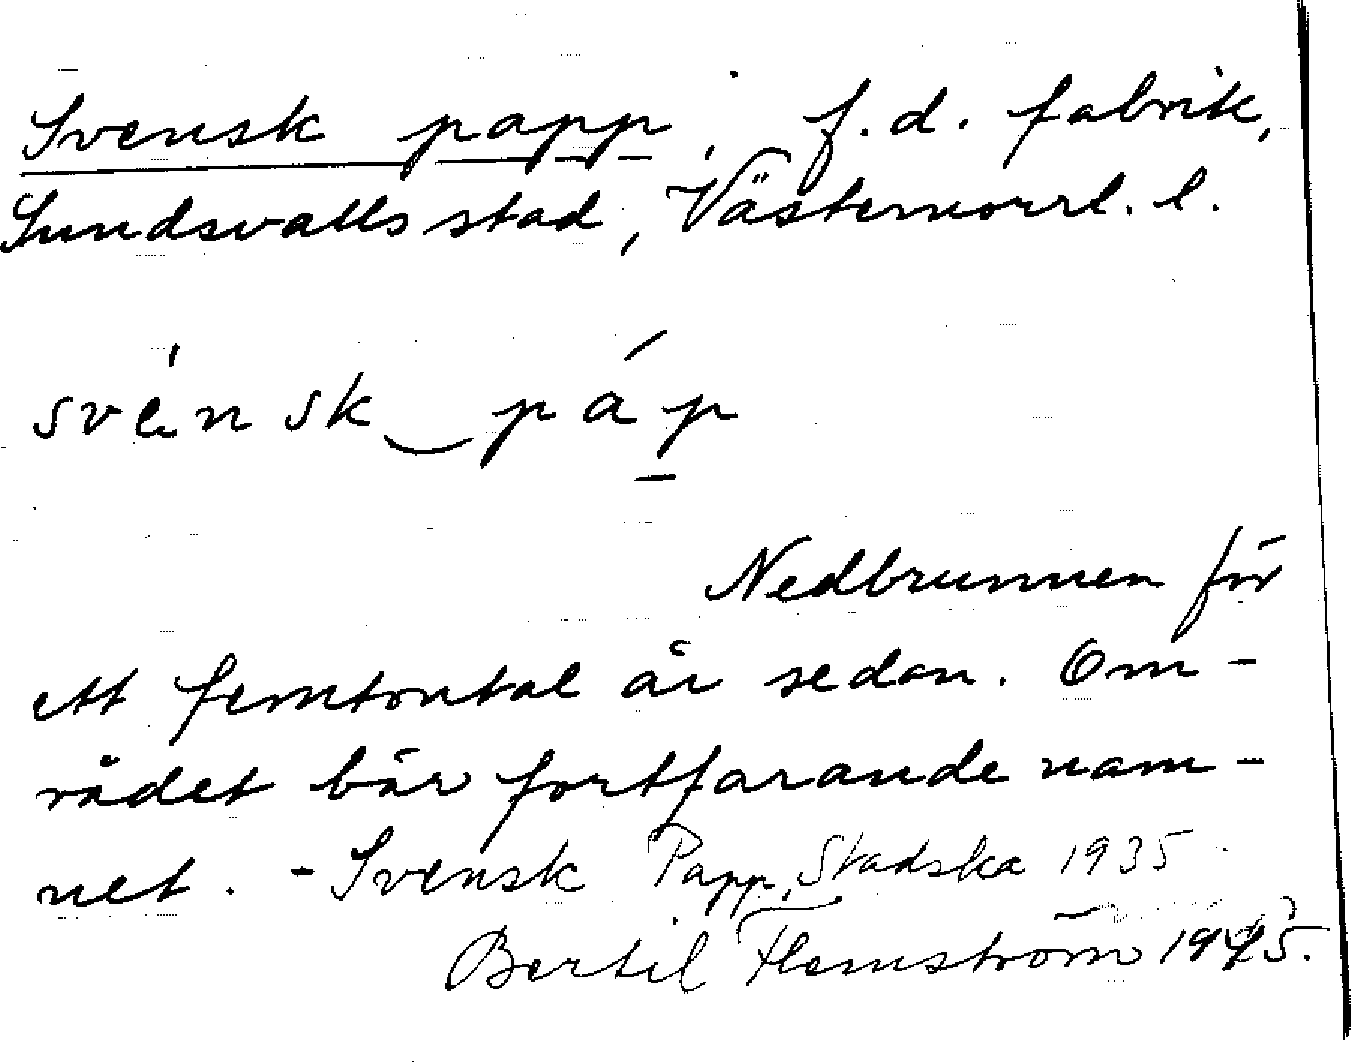 Svensk papp, f.d. fabrik,
Sundsvalls stad, Västernorrl. l.
svénsk‿páp
Nedbrunnen för
ett femtontal år sedan. Om-
rådet bär fortfarande nam-
net. - Svensk Papp, Stadska 1935
Bertil Flemström